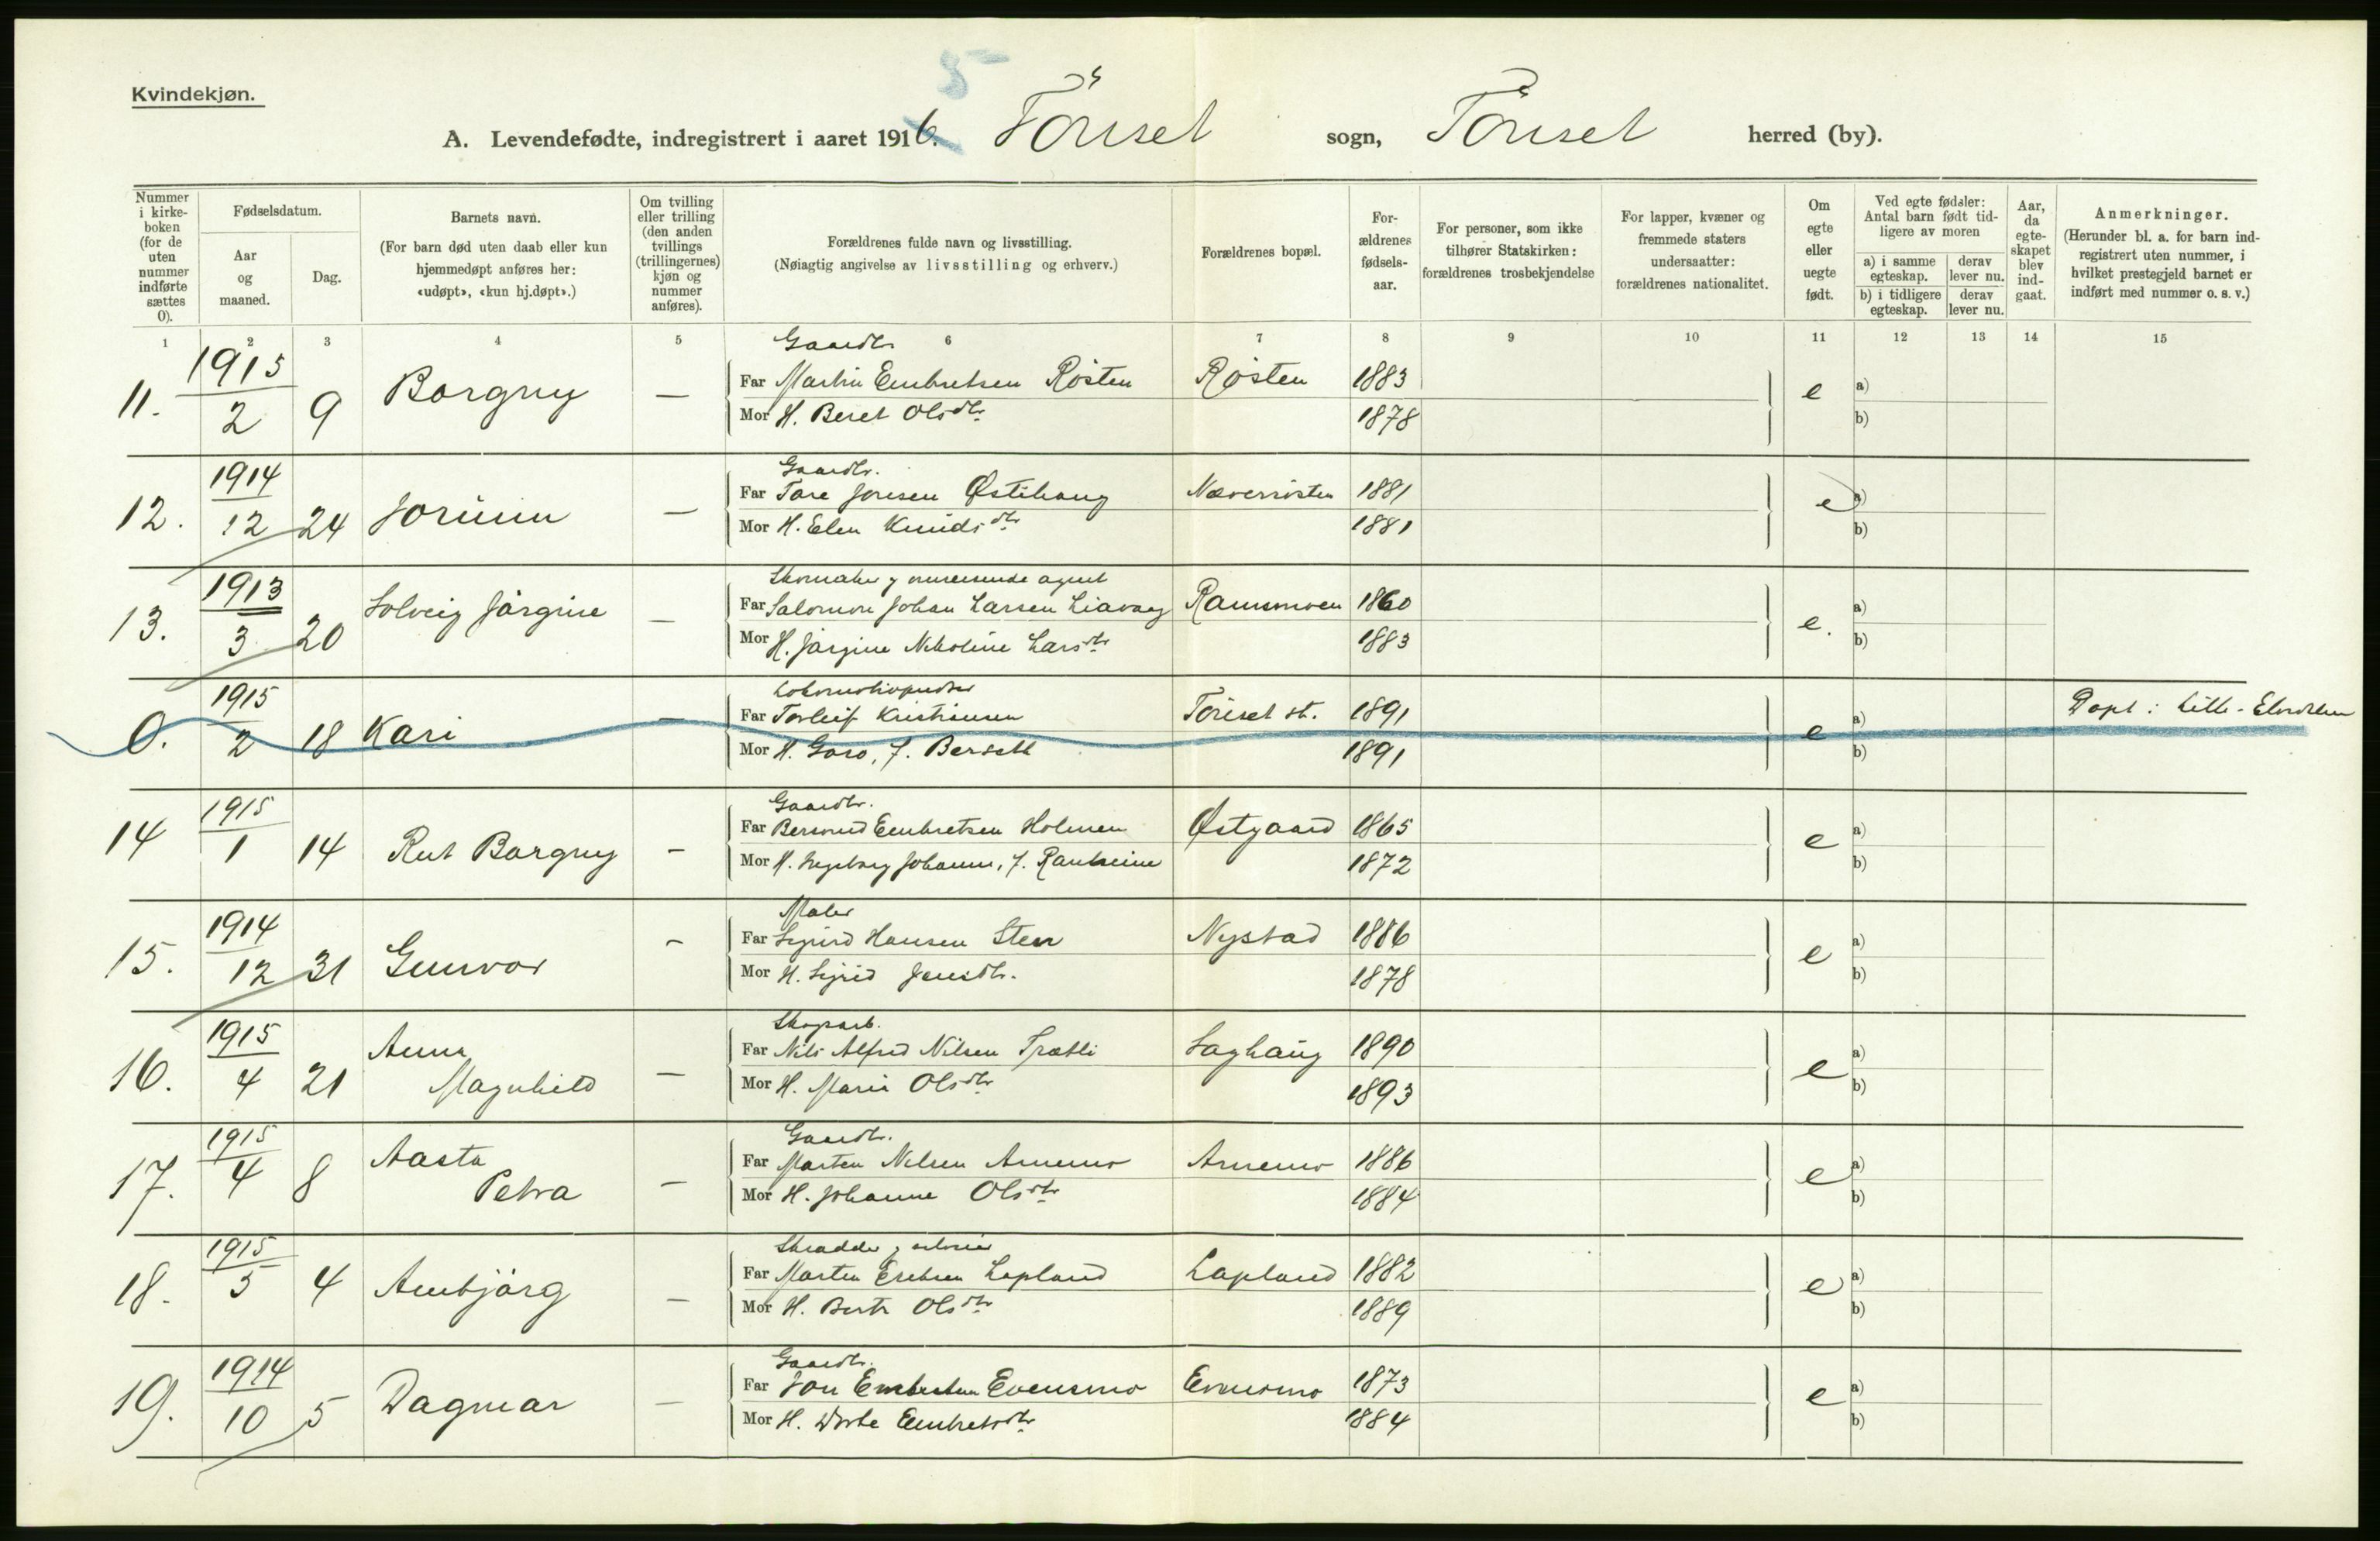 5
Kvindekjøn.
A. Levendefødte, indregistrert i aaret 1916. Tönset sogn, Tönset herred (by).
Nummer i kirkeboken (for de uten nummer indførte sættes 0).
Fødselsdatum.
Aar og maaned.
Dag.
Barnets navn.
(For barn død uten daab eller kun hjemmedøpt anføres her: «udøpt», «kun hj.døpt».)
Om tvilling eller trilling (den anden tvillings (trillingernes) kjøn og nummer anføres).
Forældrenes fulde navn og livsstilling.
(Nøiagtig angivelse av livsstilling og erhverv.)
Forældrenes bopæl.
Forældrenes fødselsaar.
For personer, som ikke tilhører Statskirken: forældrenes trosbekjendelse
For lapper, kvæner og fremmede staters undersaatter: forældrenes nationalitet.
Om egte eller uegte født.
Ved egte fødsler: Antal barn født tidligere av moren
a) i samme egteskap. derav lever nu.
b) i tidligere egteskap. derav lever nu.
Aar, da egteskapet blev indgaat.
Anmerkninger.
(Herunder bl. a. for barn indregistrert uten nummer, i hvilket prestegjeld barnet er indført med nummer o. s. v.)
1 2 3 4 5 6 7 8 9 10 11 12 13 14 15
Gaardbr.
11. 1915 2 9 Borgny — Far Martin Embretsen Røsten Røsten 1883 e a)
Mor H. Beret Olsdtr. 1878 b)
Gaardbr.
12. 1914 12 24 Jorunn — Far Tore Jonsen Østihaug Næverrösten 1881 e a)
Mor H. Elen Knudsdtr 1881 b)
Skomaker og omreisende agent
13. 1913 3 20 Solveig Jörgine — Far Salomon Johan Larsen Liavaag Ramsmoen 1860 e. a)
Mor H. Jörgine Nikoline Larsdtr 1883 b)
Lokomotivpudser
0. 1915 2 18 Kari — Far Torleif Kristiansen Tönset st. 1891 e a) Döpt: Lille-Elvedalen
Mor H. Goro, f. Berseth 1891 b)
Gaardbr.
14 1915 1 14 Rut Borgny — Far Bersvend Embretsen Holmen Østgaard 1865 e a)
Mor H. Ingeborg Johanne, f. Ranheim 1872 b)
Maler
15. 1914 12 31 Gunvor — Far Sigurd Hansen Steen Nystad 1886 e a)
Mor H. Sigrid Jensdtr. 1878 b)
Skogarb.
16. 1915 4 21 Anna Magnhild — Far Nils Alfred Nilsen Trætli Saghaug 1890 e a)
Mor H. Marie Olsdtr 1893 b)
Gaardbr.
17. 1915 4 8 Aasta Petra — Far Morten Nilsen Arnemo Arnemo 1886 e a)
Mor H. Johanne Olsdtr 1884 b)
18. 1915 5 4 Arnbjörg — Far Morten Lapland Lapland 1882 e a)
Mor H. Olsdtr 1889 b)
Gaardbr.
19. 1914 10 5 Dagmar — Far Jon Embretsen Evensmo Evensmo 1873 e a)
Mor H. Dorte Embretsdtr. 1884 b)